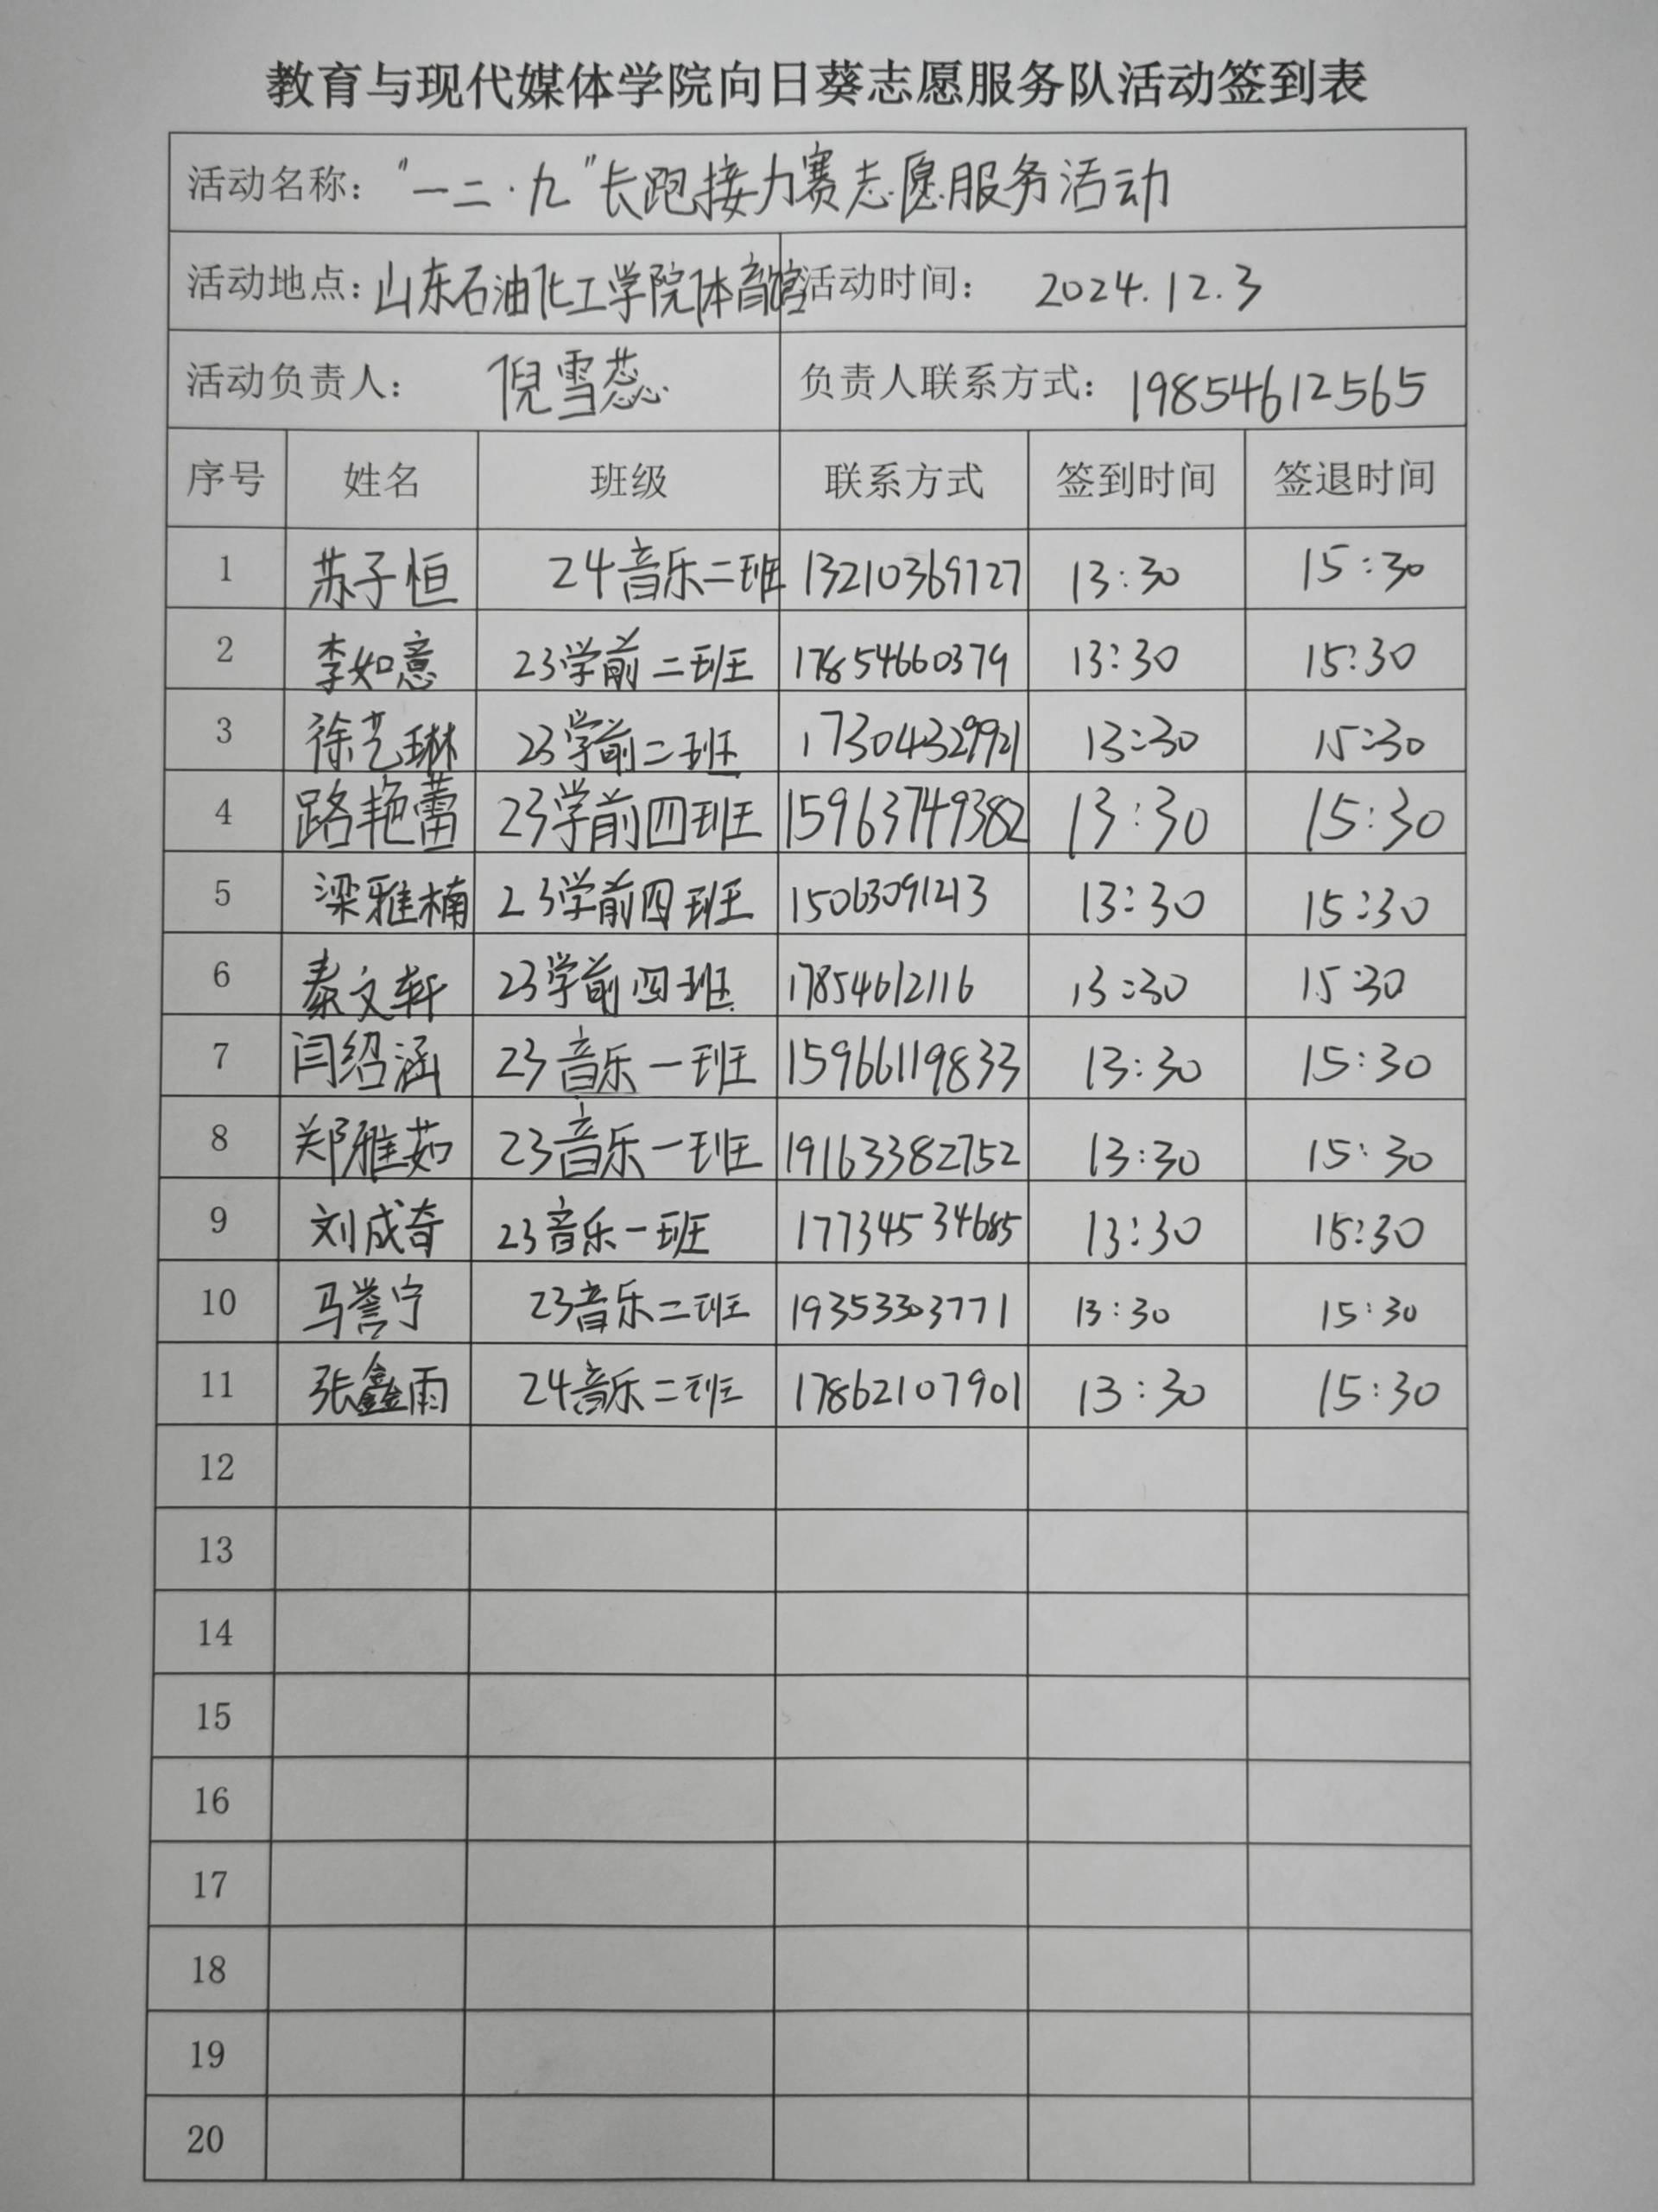 教育与现代媒体学院向日葵志愿服务队活动签到表
活动名称："一二·九"长跑接力赛志愿服务活动
活动地点：山东石油化工学院体育馆 活动时间： 2024.12.3
活动负责人： 倪雪蕊 负责人联系方式：19854612565
序号 姓名 班级 联系方式 签到时间 签退时间
1 苏子恒 24音乐二班 13210369727 13:30 15:30
2 李如意 23学前二班 17854660379 13:30 15:30
3 徐艺琳 23学前二班 17304329921 13:30 15:30
4 路艳蕾 23学前四班 15963749382 13:30 15:30
5 梁雅楠 23学前四班 15063091213 13:30 15:30
6 秦文轩 23学前四班 17854612116 13:30 15:30
7 闫绍涵 23音乐一班 15966119833 13:30 15:30
8 郑雅茹 23音乐一班 19163382752 13:30 15:30
9 刘成奇 23音乐一班 17734534685 13:30 15:30
10 马誉宁 23音乐二班 19353303771 13:30 15:30
11 张鑫雨 24音乐二班 17862107901 13:30 15:30
12
13
14
15
16
17
18
19
20